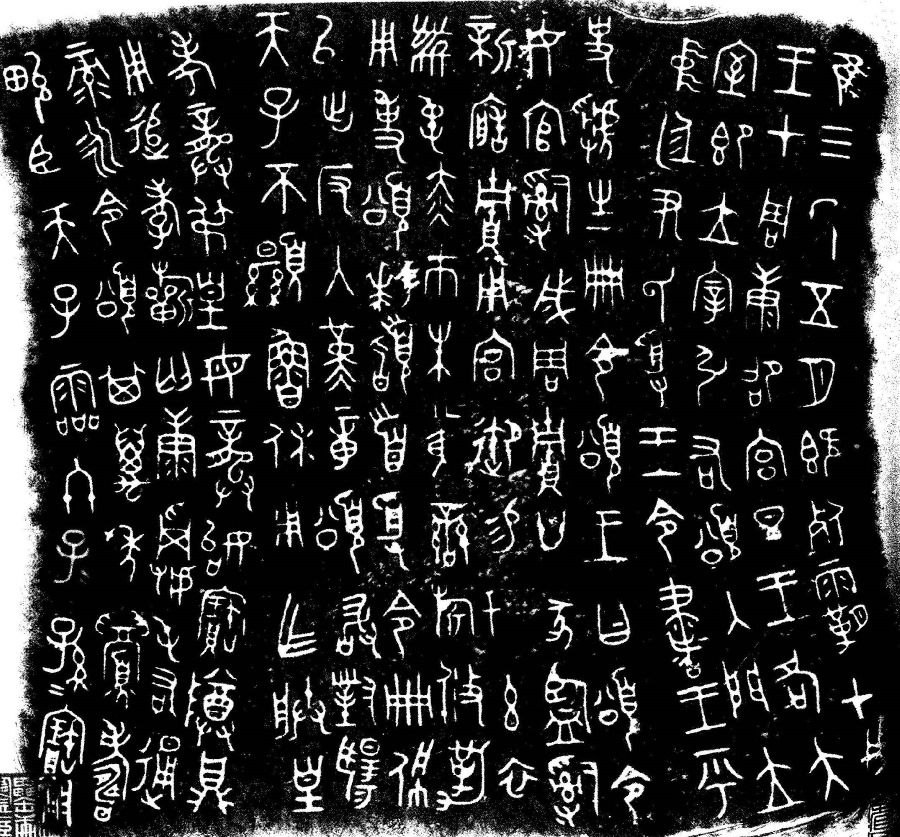 隹三年五月既死霸甲戌
王才周康卲宮旦王各大
室即立宰引右頌入門立
中廷尹氏受王令書王乎
史虢生冊令頌王曰頌令
女官𤔲成周貯廿家監𤔲
新造貯用宮御易女玄衣
黹屯赤巿朱黃鑾旂攸勒
用事頌拜𩒨首受令冊佩
以出反入堇章頌敢對揚
天子不顯魯休用乍朕皇
考龔叔皇母龔姒寶尊鼎
用追孝祈匄康屯右通
彔永令頌其萬年眉壽
畯臣天子霝冬子子孫孫寶用